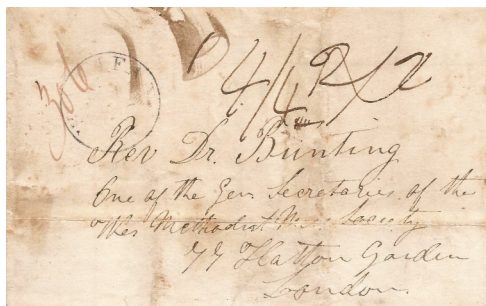 Rev Dr. Bunting
One of the Gen Secretaries of the
Wes Methodist Miss Society
77 Hatton Garden
London.